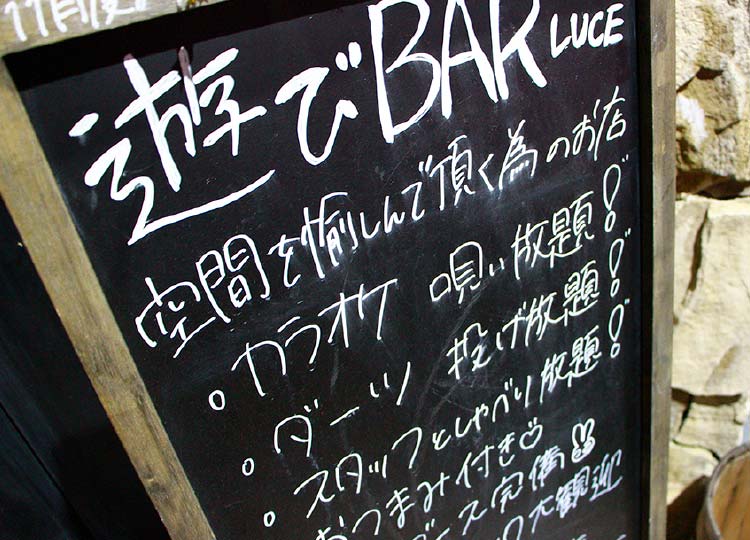 遊びBAR LUCE
空間を愉しんで頂く為のお店
カラオケ 唄い放題!
ダーツ 投げ放題!
スタッフとしゃべり放題!
おつまみ付き
ース完備
大観迎